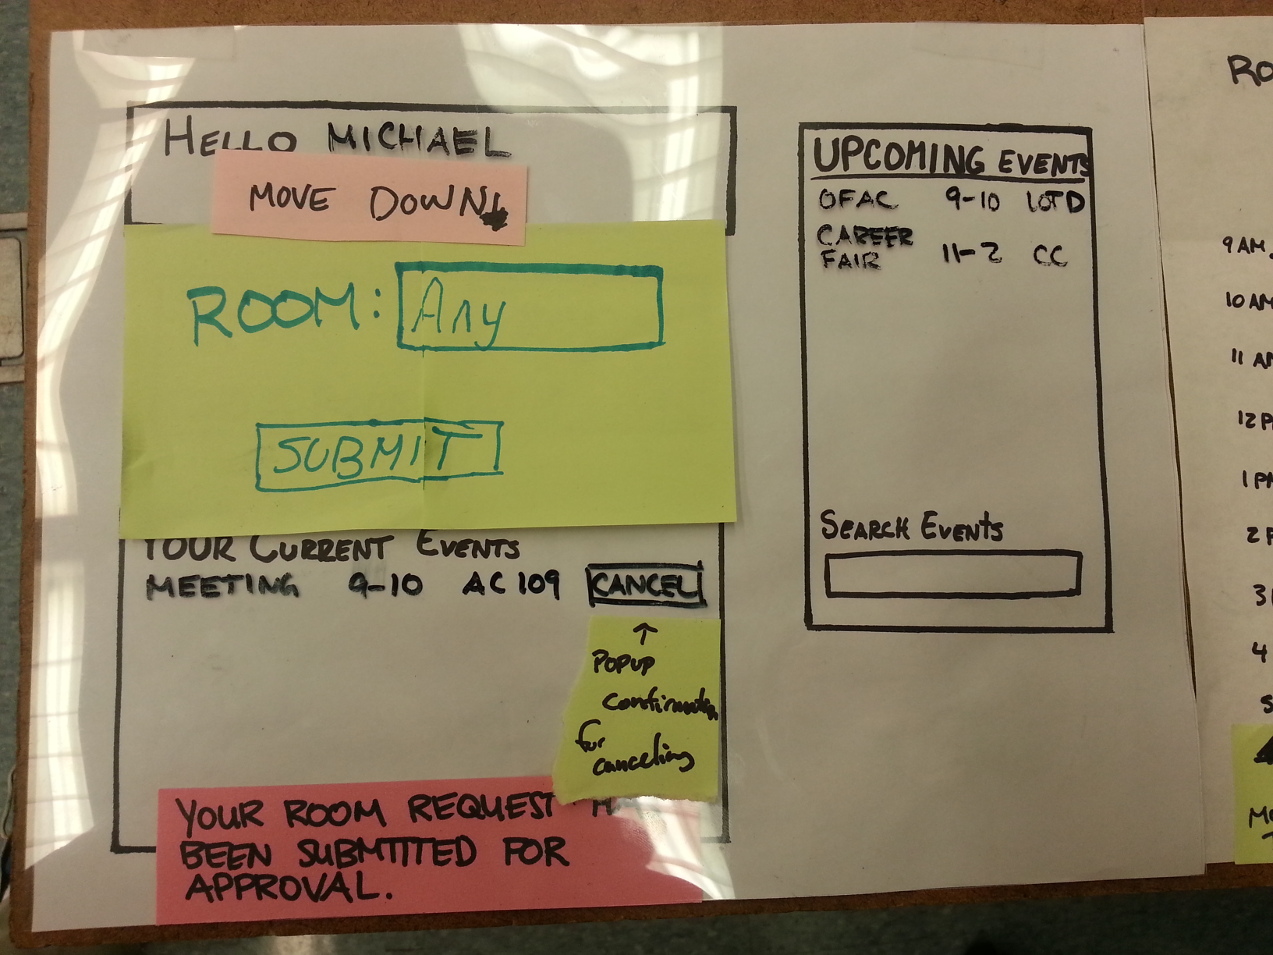 HELLO MICHAEL
MOVE DOWN
ROOM: Any
SUBMIT
YOUR CURRENT EVENTS
MEETING 9-10 AC 109 CANCEL
↑
POPUP
confirmation
for
canceling
YOUR ROOM REQUEST
BEEN SUBMITTED FOR
APPROVAL.
UPCOMING EVENTS
OFAC 9-10 LOTD
CAREER
FAIR 11-2 CC
SEARCH EVENTS
9 AM
10 AM